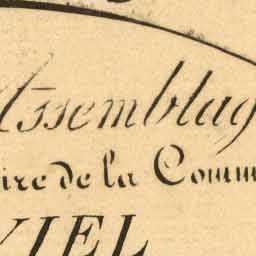 Assemblag
ire de la Comm
VIEL